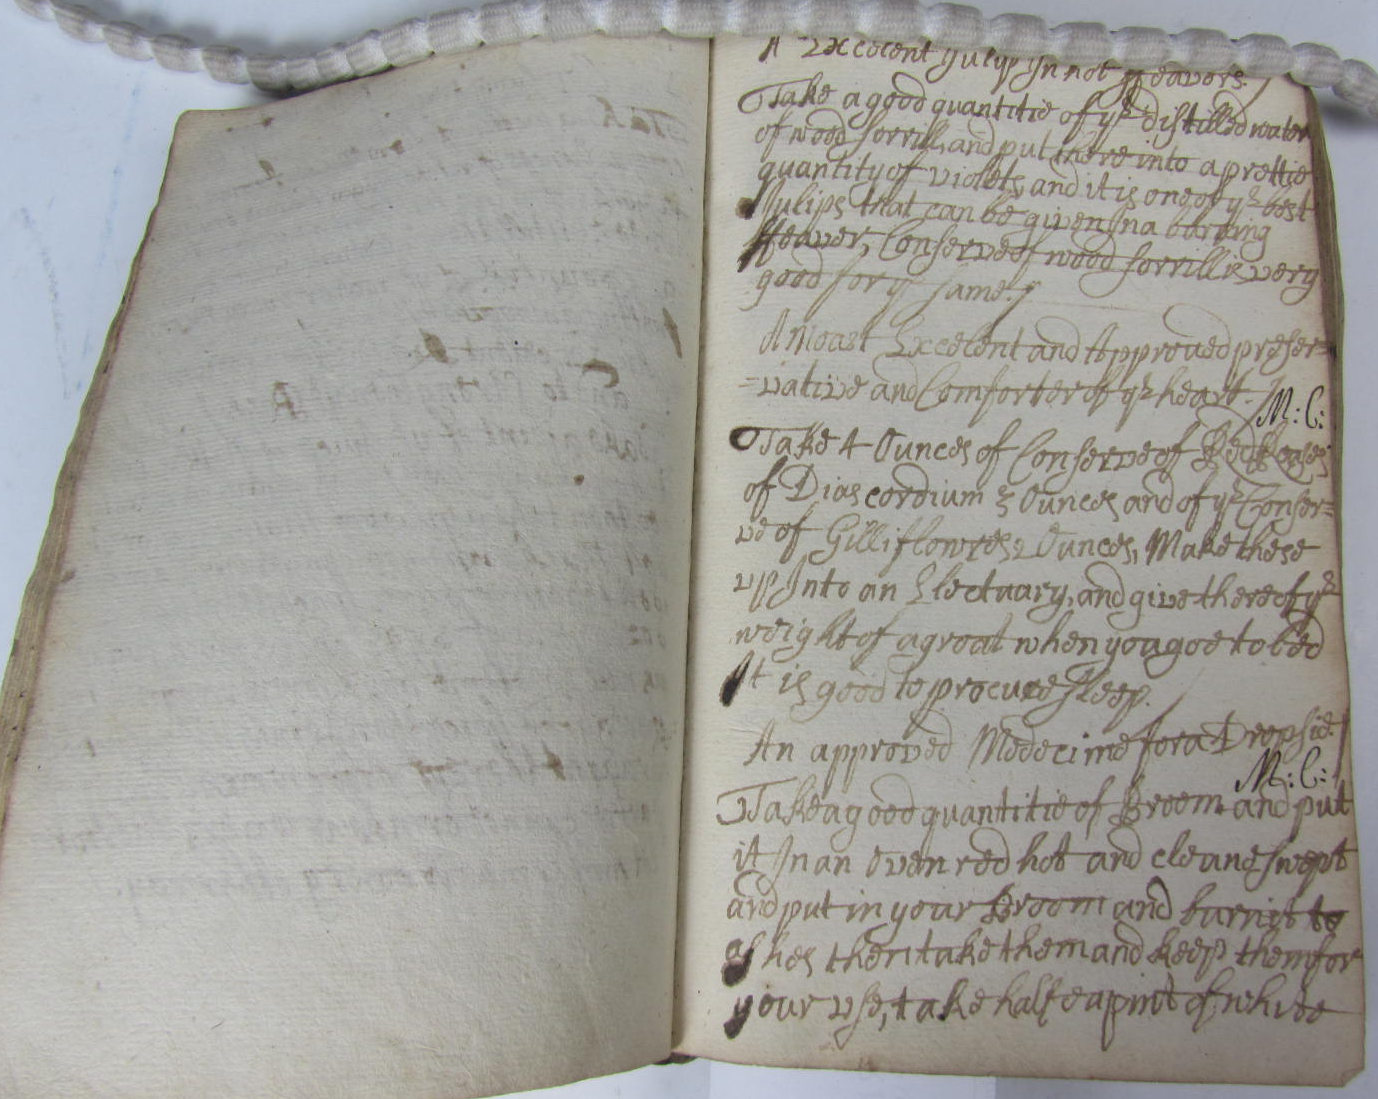 A Excelent Julip In hot ffeavers
Take a good quantitie of ye distilled water
of wood sorrill, and put there into a prettie
quantity of violets, and it is one of ye best
Julips that can be given In a burning
ffeaver, Conserve of wood sorrill is very
good for ye same.
A Moast Excelent and Approved preser=
=vative and Comforter of ye heart.
M: C:
Take 4 Ounces of Conserve of Red Roses
of Diascordium 3 Ounces and of ye Conser=
ve of Gilliflowres 2 Ounces, Make these
up Into an Electuary, and give thereof ye
weight of a groat when you goe to bed
It is good to procure sleep.
An approved Medecine for a Dropsie
M: C:
Take a good quantitie of Broom and put
it In an Oven red hot and cleane swept
and put in your Broom and burn it to
ashes then take them and keep them for
your use, take halfe a pint of white